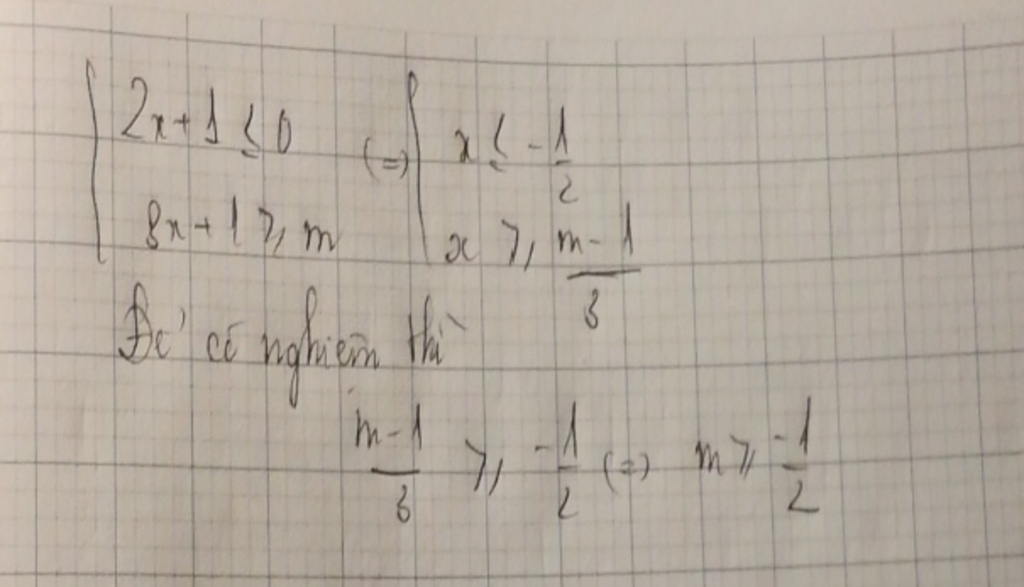 { 2x+1 ≤ 0 (=) { x ≤ -1/2
{ 3x+1 ≥ m { x ≥ m-1/3
Để có nghiệm thì
m-1/3 ≥ -1/2 (=) m ≥ -1/2